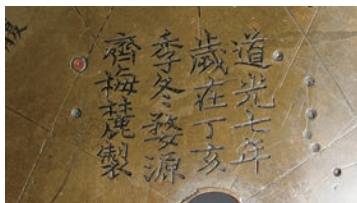 道光七年
歲在丁亥
季冬婺源
齊梅麓製